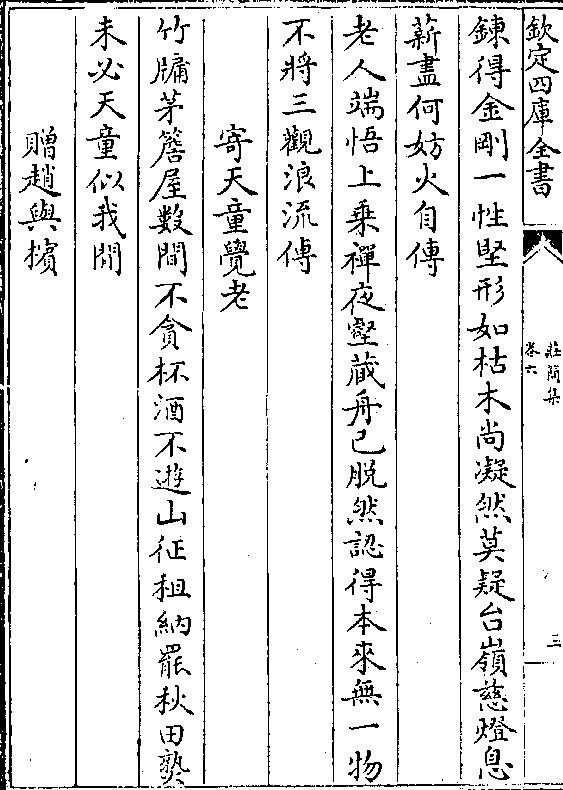 欽定四庫全書
莊簡集
卷六
三
鍊得金剛一性堅形如枯木尚凝然莫疑台嶺慈燈息
薪盡何妨火自傳
老人端悟上乗禪夜壑藏舟已脱然認得本來無一物
不將三觀浪流傳
寄天童覺老
竹牖茅簷屋數間不貪杯酒不遊山征租納罷秋田熟
未必天童似我閒
贈趙與擯